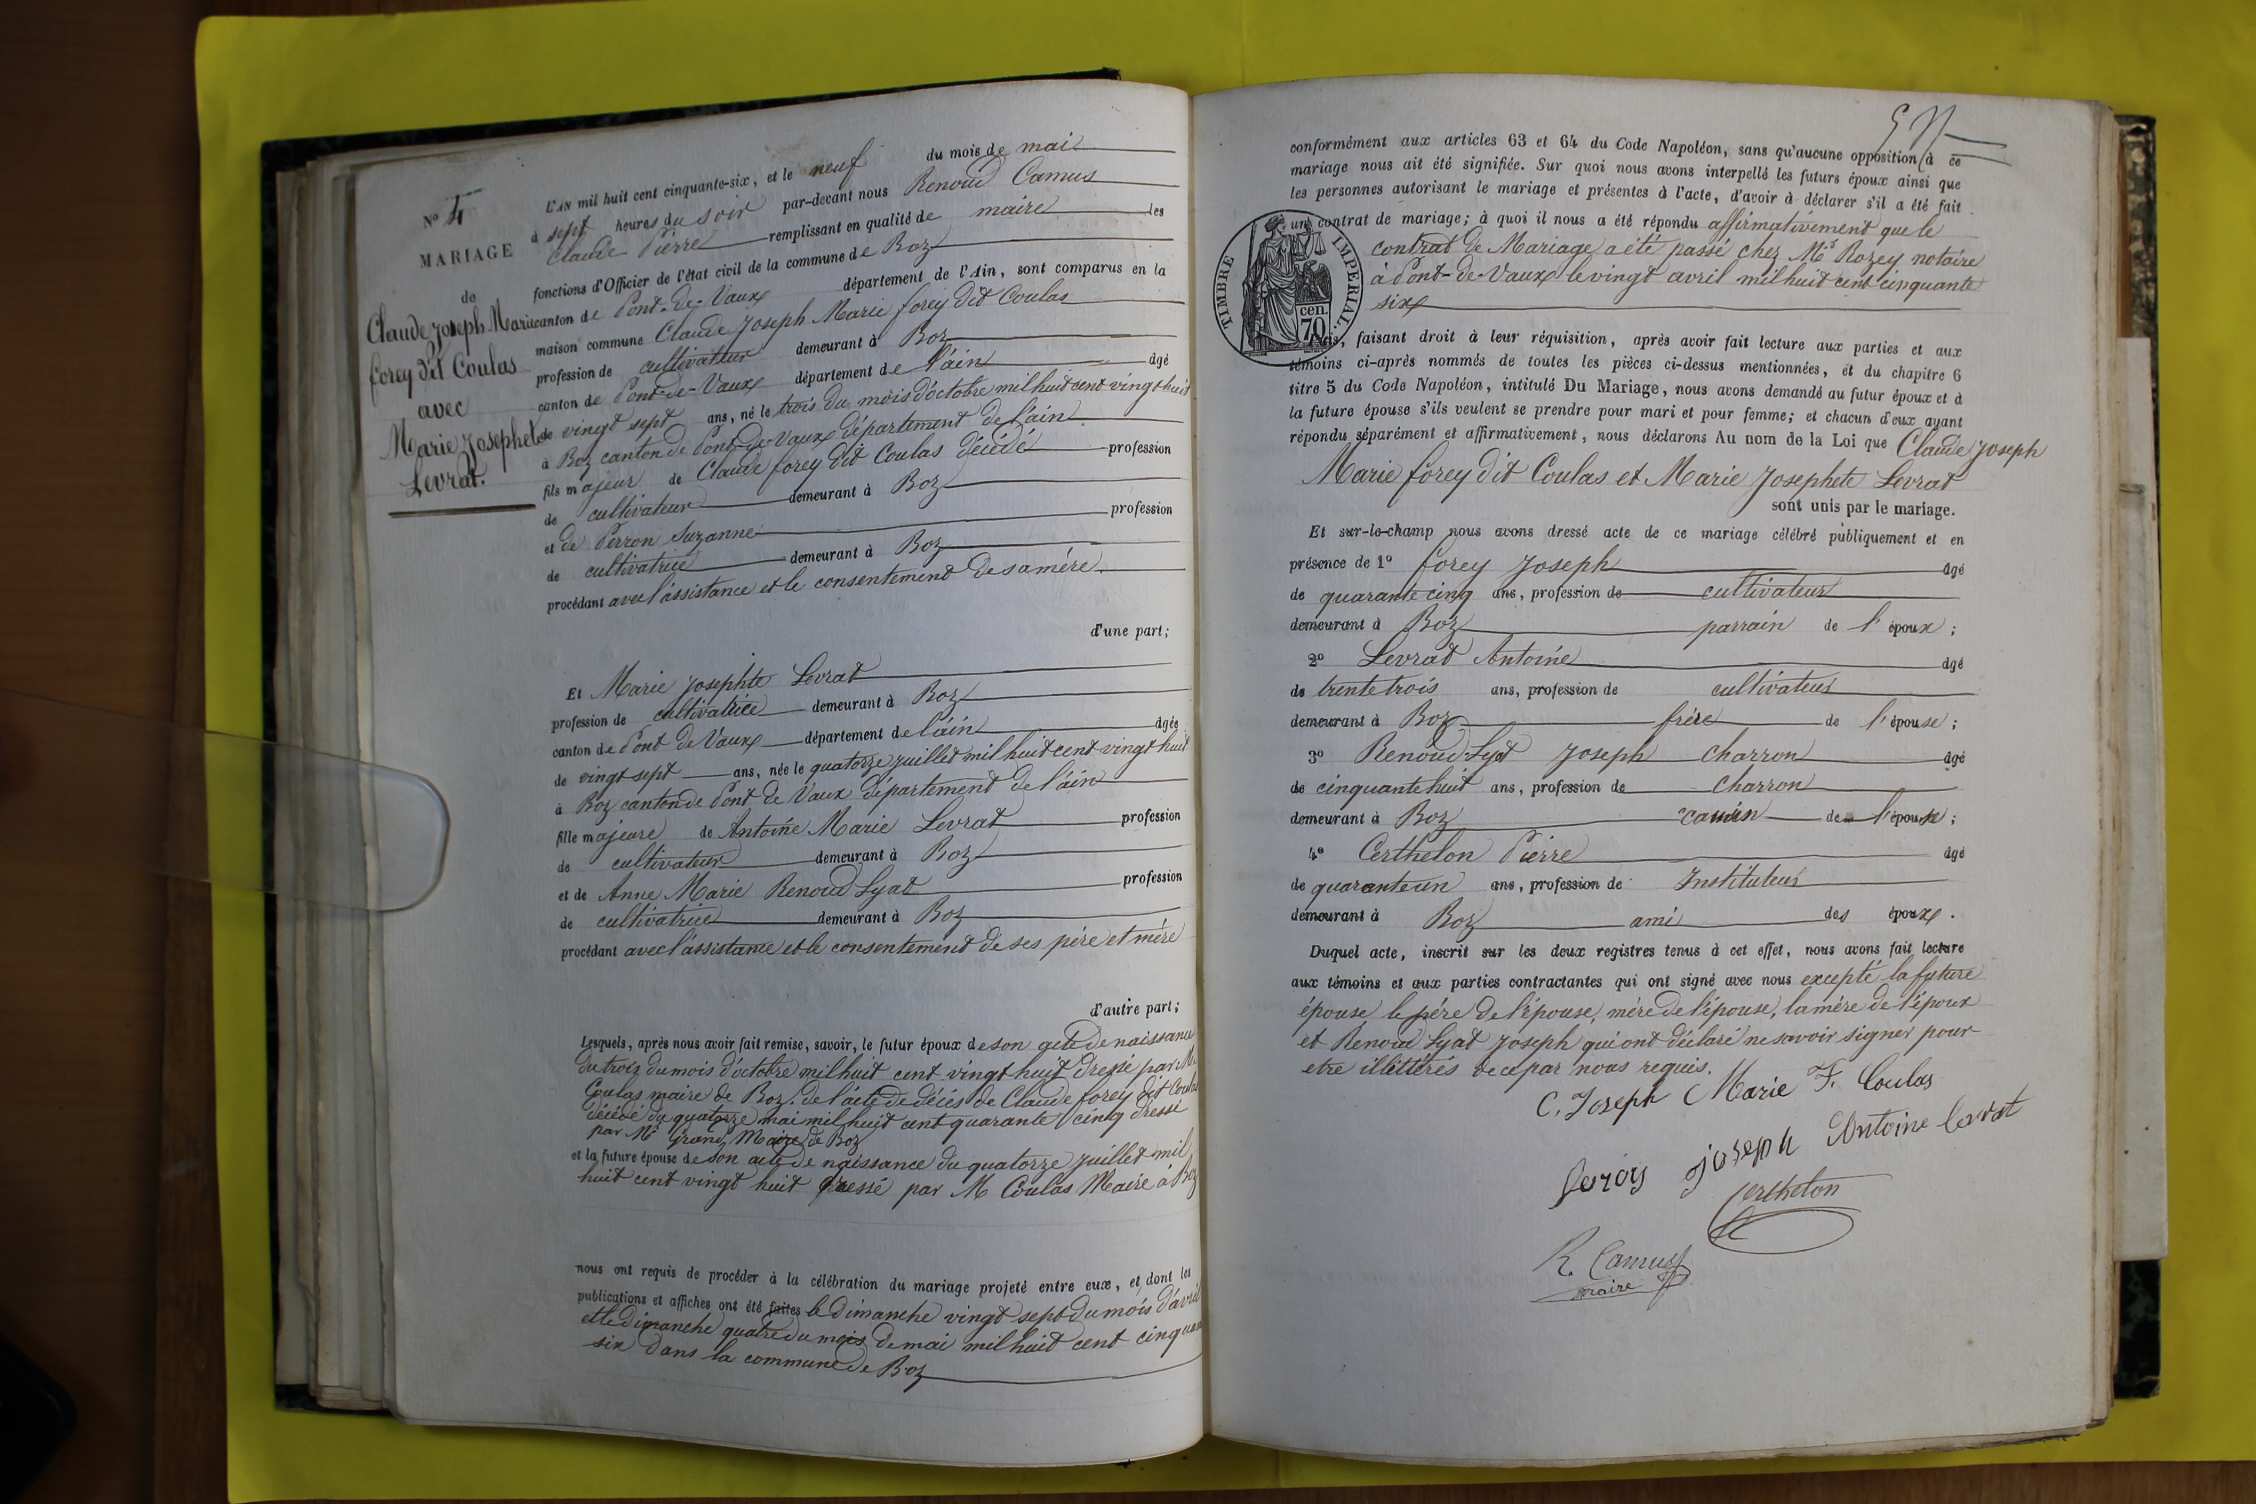 N° 4
MARIAGE
de
Claude Joseph Marie
forey dit Coulas
avec
Marie Josephete
Levrat.
L'AN mil huit cent cinquante-six, et le neuf du mois de mai
à sept heures du soir par-devant nous Renoud Camus
Claude Pierre remplissant en qualité de maire les
fonctions d'Officier de l'état civil de la commune de Boz
canton de Pont-de-Vaux département de l'Ain, sont comparus en la
maison commune Claude Joseph Marie forey dit Coulas
profession de cultivateur demeurant à Boz
canton de Pont-de-Vaux département de l'áin âgé
de vingt sept ans, né le trois du mois d'octobre mil huit cent vingt huit
à Boz canton de Pont-de-Vaux département de l'áin
fils majeur de Claude forey dit Coulas décédé profession
de cultivateur demeurant à Boz
et de Perron Suzanne profession
de cultivatrice demeurant à Boz
procédant avec l'assistance et le consentement de sa mére
d'une part;
Et Marie Josephte Levrat
profession de cultivatrice demeurant à Boz
canton de Pont de Vaux département de l'áin âgée
de vingt sept ans, née le quatorze juillet mil huit cent vingt huit
à Boz canton de Pont de Vaux département de l'áin
fille majeure de Antoine Marie Levrat profession
de cultivateur demeurant à Boz
et de Anne Marie Renoud Lyat profession
de cultivatrice demeurant à Boz
procédant avec l'assistance et le consentement de ses pére et mére
d'autre part;
Lesquels, après nous avoir fait remise, savoir, le futur époux de son acte de naissance
du trois du mois d'octobre mil huit cent vingt huit dressé par M.
Coulas maire de Boz. de l'acte de décès de Claude forey dit Coulas
décédé du quatorze mai mil huit cent quarante cinq dressé
par Mr Grand Maire de Boz
et la future épouse de son acte de naissance du quatorze juillet mil
huit cent vingt huit dressé par M Coulas Maire à Boz
nous ont requis de procéder à la célébration du mariage projeté entre eux, et dont les
publications et affiches ont été faites le dimanche vingt sept du mois d'avril
et le dimanche quatre du mois de mai mil huit cent cinquante
six dans la commune de Boz
conformément aux articles 63 et 64 du Code Napoléon, sans qu'aucune opposition à ce
mariage nous ait été signifiée. Sur quoi nous avons interpellé les futurs époux ainsi que
les personnes autorisant le mariage et présentes à l'acte, d'avoir à déclarer s'il a été fait
un contrat de mariage; à quoi il nous a été répondu affirmativement que le
contrat de Mariage a été passé chez Me Rozey notaire
à Pont-de-Vaux le vingt avril mil huit cent cinquante
six
TIMBRE IMPERIAL.
cen.
70
Nous, faisant droit à leur réquisition, après avoir fait lecture aux parties et aux
témoins ci-après nommés de toutes les pièces ci-dessus mentionnées, et du chapitre 6
titre 5 du Code Napoléon, intitulé Du Mariage, nous avons demandé au futur époux et à
la future épouse s'ils veulent se prendre pour mari et pour femme; et chacun d'eux ayant
répondu séparément et affirmativement, nous déclarons Au nom de la Loi que Claude Joseph
Marie forey dit Coulas et Marie Josephete Levrat
sont unis par le mariage.
Et sur-le-champ nous avons dressé acte de ce mariage célébré publiquement et en
présence de 1° forey Joseph âgé
de quarante cinq ans, profession de cultivateur
demeurant à Boz parrain de l'époux;
2° Levrat Antoine âgé
de trente trois ans, profession de cultivateur
demeurant à Boz frére de l'épouse;
3° Renoud Lyat Joseph charron âgé
de cinquante huit ans, profession de Charron
demeurant à Boz cousin de l'époux;
4° Certhelon Pierre âgé
de quarante un ans, profession de Instituteur
demeurant à Boz ami des époux.
Duquel acte, inscrit sur les deux registres tenus à cet effet, nous avons fait lecture
aux témoins et aux parties contractantes qui ont signé avec nous excepté la future
épouse le pére de l'épouse, mére de l'épouse, la mére de l'époux
et Renoud Lyat Joseph qui ont déclaré ne savoir signer pour
etre illittérés de ce par nous requis.
C. Joseph Marie F. Coulas
joseph Antoine Levrat
Certhelon
R. Camus
maire